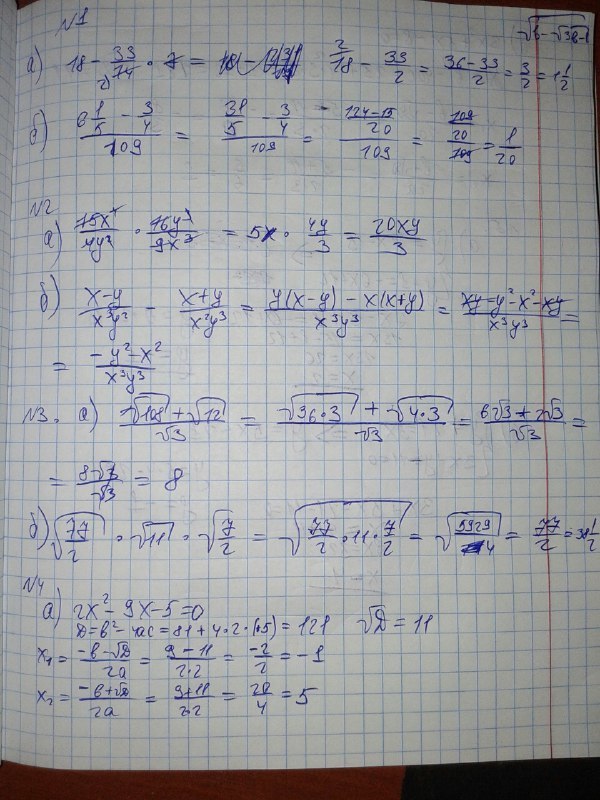 √b-√3b-1
N1
а) 18 - 33/14 · 7 = 18/1 - 33/2 = 36-33/2 = 3/2 = 1 1/2
б) (6 1/5 - 3/4)/109 = (31/5 - 3/4)/109 = ((124-15)/20)/109 = (109/20)/109 = 1/20
N2
а) 75x⁴/4y² · 16y³/9x³ = 5x · 4y/3 = 20xy/3
б) (x-y)/(x³y²) - (x+y)/(x²y³) = (y(x-y) - x(x+y))/(x³y³) = (xy-y²-x²-xy)/(x³y³) =
= (-y²-x²)/(x³y³)
N3. а) (√108 + √12)/√3 = (√36·3 + √4·3)/√3 = (6√3+2√3)/√3 =
= 8√3/√3 = 8
б) √(77/2) · √11 · √(7/2) = √(77/2 · 11 · 7/2) = √(5929/4) = 77/2 = 38 1/2
N4
а) 2x² - 9x - 5 = 0
D = b² - 4ac = 81 + 4·2·(+5) = 121 √D = 11
x₁ = (-b-√D)/2a = (9-11)/2·2 = -2/2 = -1
x₂ = (-b+√D)/2a = (9+11)/2·2 = 20/4 = 5